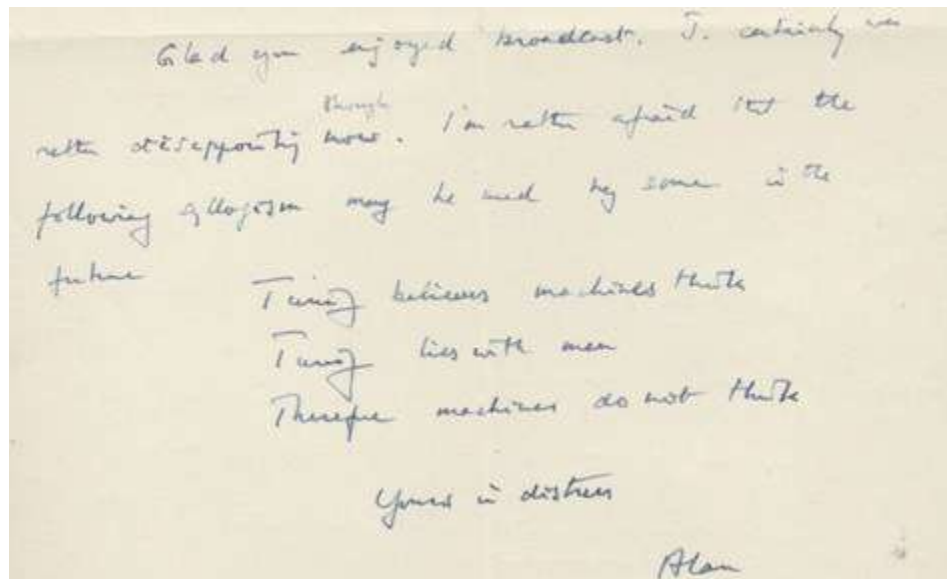 Glad you enjoyed broadcast. J. certainly was
rather disappointing though. I'm rather afraid that the
following syllogism may be used by some in the
future
Turing believes machines think
Turing lies with men
Therefore machines do not think
Yours in distress
Alan